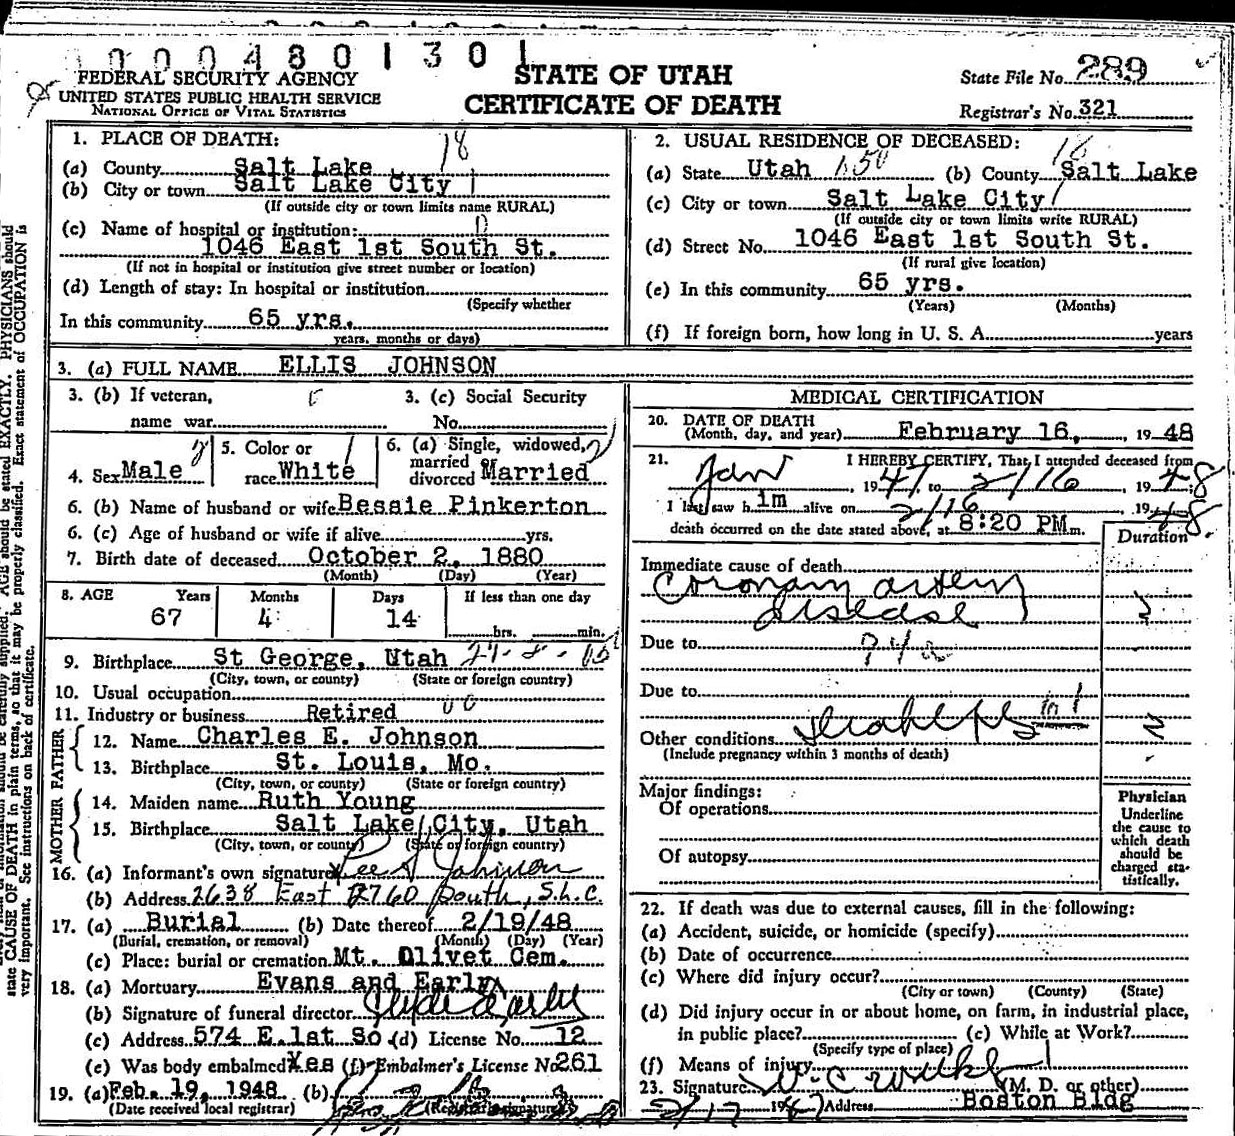 0004801301
FEDERAL SECURITY AGENCY
UNITED STATES PUBLIC HEALTH SERVICE
NATIONAL OFFICE OF VITAL STATISTICS
STATE OF UTAH
CERTIFICATE OF DEATH
State File No. 289
Registrar's No. 321
1. PLACE OF DEATH: 18
(a) County Salt Lake
(b) City or town Salt Lake City 1
(If outside city or town limits name RURAL)
(c) Name of hospital or institution: 0
1046 East 1st South St.
(If not in hospital or institution give street number or location)
(d) Length of stay: In hospital or institution
(Specify whether
In this community 65 yrs.
years, months or days)
2. USUAL RESIDENCE OF DECEASED: 18
(a) State Utah 150 (b) County Salt Lake
(c) City or town Salt Lake City 1
(If outside city or town limits write RURAL)
(d) Street No. 1046 East 1st South St.
(If rural give location)
(e) In this community 65 yrs.
(Years) (Months)
(f) If foreign born, how long in U. S. A. years
3. (a) FULL NAME ELLIS JOHNSON
3. (b) If veteran, name war
3. (c) Social Security No.
4. Sex Male
5. Color or race White 1
6. (a) Single, widowed, married or divorced Married 2
6. (b) Name of husband or wife Bessie Pinkerton
6. (c) Age of husband or wife if alive yrs.
7. Birth date of deceased October 2, 1880
(Month) (Day) (Year)
8. AGE Years Months Days If less than one day
67 4 14 hrs. min.
9. Birthplace St George, Utah
(City, town, or county) (State or foreign country)
10. Usual occupation
11. Industry or business Retired 00
FATHER
12. Name Charles E. Johnson
13. Birthplace St. Louis, Mo.
(City, town, or county) (State or foreign country)
MOTHER
14. Maiden name Ruth Young
15. Birthplace Salt Lake City, Utah
(City, town, or county) (State or foreign country)
16. (a) Informant's own signature Johnson
(b) Address 2638 East 2760 South, S.L.C.
17. (a) Burial (b) Date thereof 2/19/48
(Burial, cremation, or removal) (Month) (Day) (Year)
(c) Place: burial or cremation Mt. Olivet Cem.
18. (a) Mortuary Evans and Early
(b) Signature of funeral director Clyde Early
(c) Address 574 E. 1st So. (d) License No. 12
(e) Was body embalmed Yes (f) Embalmer's License No. 261
19. (a) Feb. 19, 1948 (b)
(Date received local registrar) (Registrar's signature)
MEDICAL CERTIFICATION
20. DATE OF DEATH
(Month, day, and year) February 16, 1948
21. I HEREBY CERTIFY, That I attended deceased from
Jan, 1947, to 2/16 1948
I last saw him alive on 2/16, 1948
death occurred on the date stated above, at 8:20 PM m.
Duration
Immediate cause of death
Coronary artery
disease
Due to
Due to
Other conditions
(Include pregnancy within 3 months of death)
Major findings:
Of operations
Of autopsy
Physician
Underline
the cause to
which death
should be
charged sta-
tistically.
22. If death was due to external causes, fill in the following:
(a) Accident, suicide, or homicide (specify)
(b) Date of occurrence
(c) Where did injury occur?
(City or town) (County) (State)
(d) Did injury occur in or about home, on farm, in industrial place,
in public place? (e) While at Work?
(Specify type of place)
(f) Means of injury
23. Signature (M. D. or other)
2/17 Address Boston Bldg